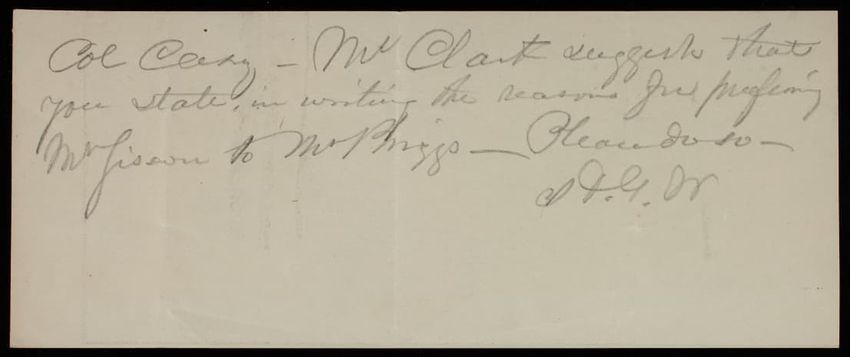 Col Casey – Mr Clark suggests that
you state, in writing the reasons for preferring
Mr to Mr – Please do so –